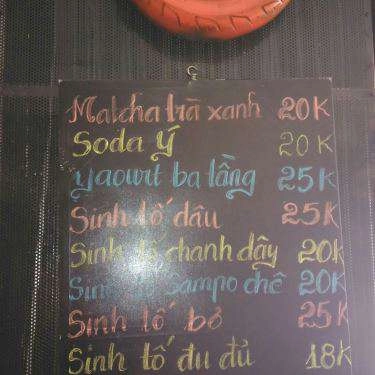 Matcha trà xanh 20K
Soda Ý 20K
yaourt ba tầng 25K
Sinh tố dâu 25K
Sinh tố chanh dây 20K
Sinh tố Sampo chê 20K
Sinh tố bơ 25K
Sinh tố đu đủ 18K